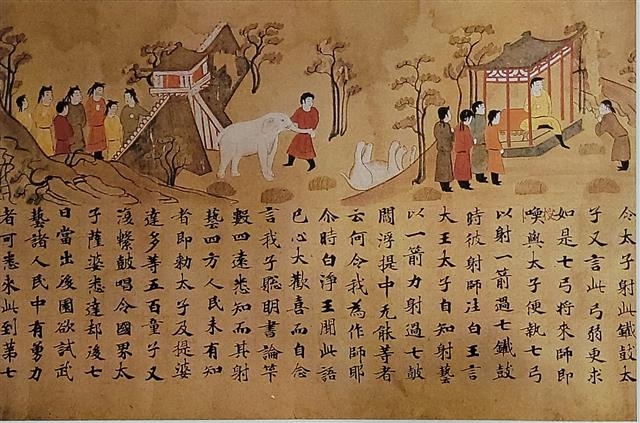 令太子射此鐵鼓太
子又言此弓弱更求
如是七弓將來師即
喚與太子便執七弓
以射一箭過七鐵鼓
時彼射師往白王言
大王太子自知射藝
以一箭力射過七皷
閻浮提中无能等者
云何令我為作師耶
尒時白淨王聞此語
已心大歡喜而自念
言我子聡明書論等
數四遠悉知而其射
藝四方人民未有知
者即勅太子及提婆
達多等五百童子又
復擊鼓唱令國界太
子薩婆悉達却後七
日當出後園欲試武
藝諸人民中有勇力
者可悉来此到第七